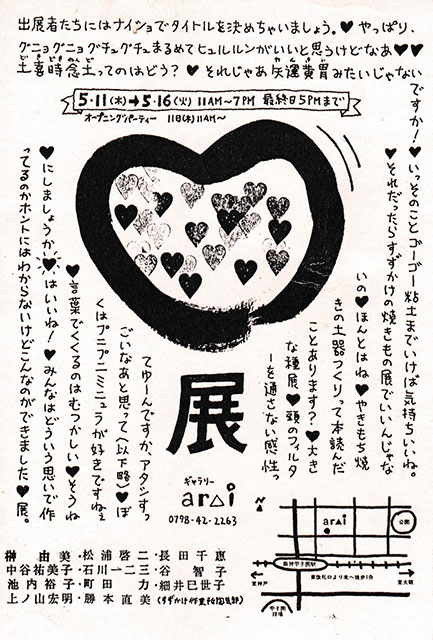 出展者たちにはナイショでタイトルを決めちゃいましょう。♥やっぱり、
グニョグニョグチュグチュまるめてヒュルルンがいいと思うけどなあ♥♥
土喜時念土ってのはどう?♥それじゃあ矢運貴胃みたいじゃない
ですか!♥いっそのことゴーゴー粘土までいけば気持ちいいね。
♥それだったらすずかけの焼きもの展でいいんじゃな
いの♥ほんとはね♥やきもち焼
きの土器つくりって本読んだ
ことあります?♥大き
な種展♥頭のフィルタ
ーを通さない感性っ
てゆーんですか、アタシすっ
ごいなあと思って(以下略)♥ぼ
くはプニプニミニュラが好きですねぇ
♥言葉でくくるのはむつかしい♥そうね
♥にしましょうか♥はいいね!♥みんなはどういう思いで作
ってるのかホントにはわからないけどこんなのができました♥展。
5・11(木)→5・16(火) 11AM〜7PM 最終日5PMまで
オープニングパーティー 11日(木)11AM〜
展
ギャラリー
arai
0798-42-2263
榊 由美・松浦啓二・長田千恵
中谷祐美子・石川一二三・谷 智子
池内裕子・町田 力・細井巳世子
上ノ山宏明・勝本直美(すずかけ作業所陶芸部)
N
arai
公園
阪神甲子園駅
至神戸
東改札口より北へ徒歩1分
至大阪
甲子園
球場